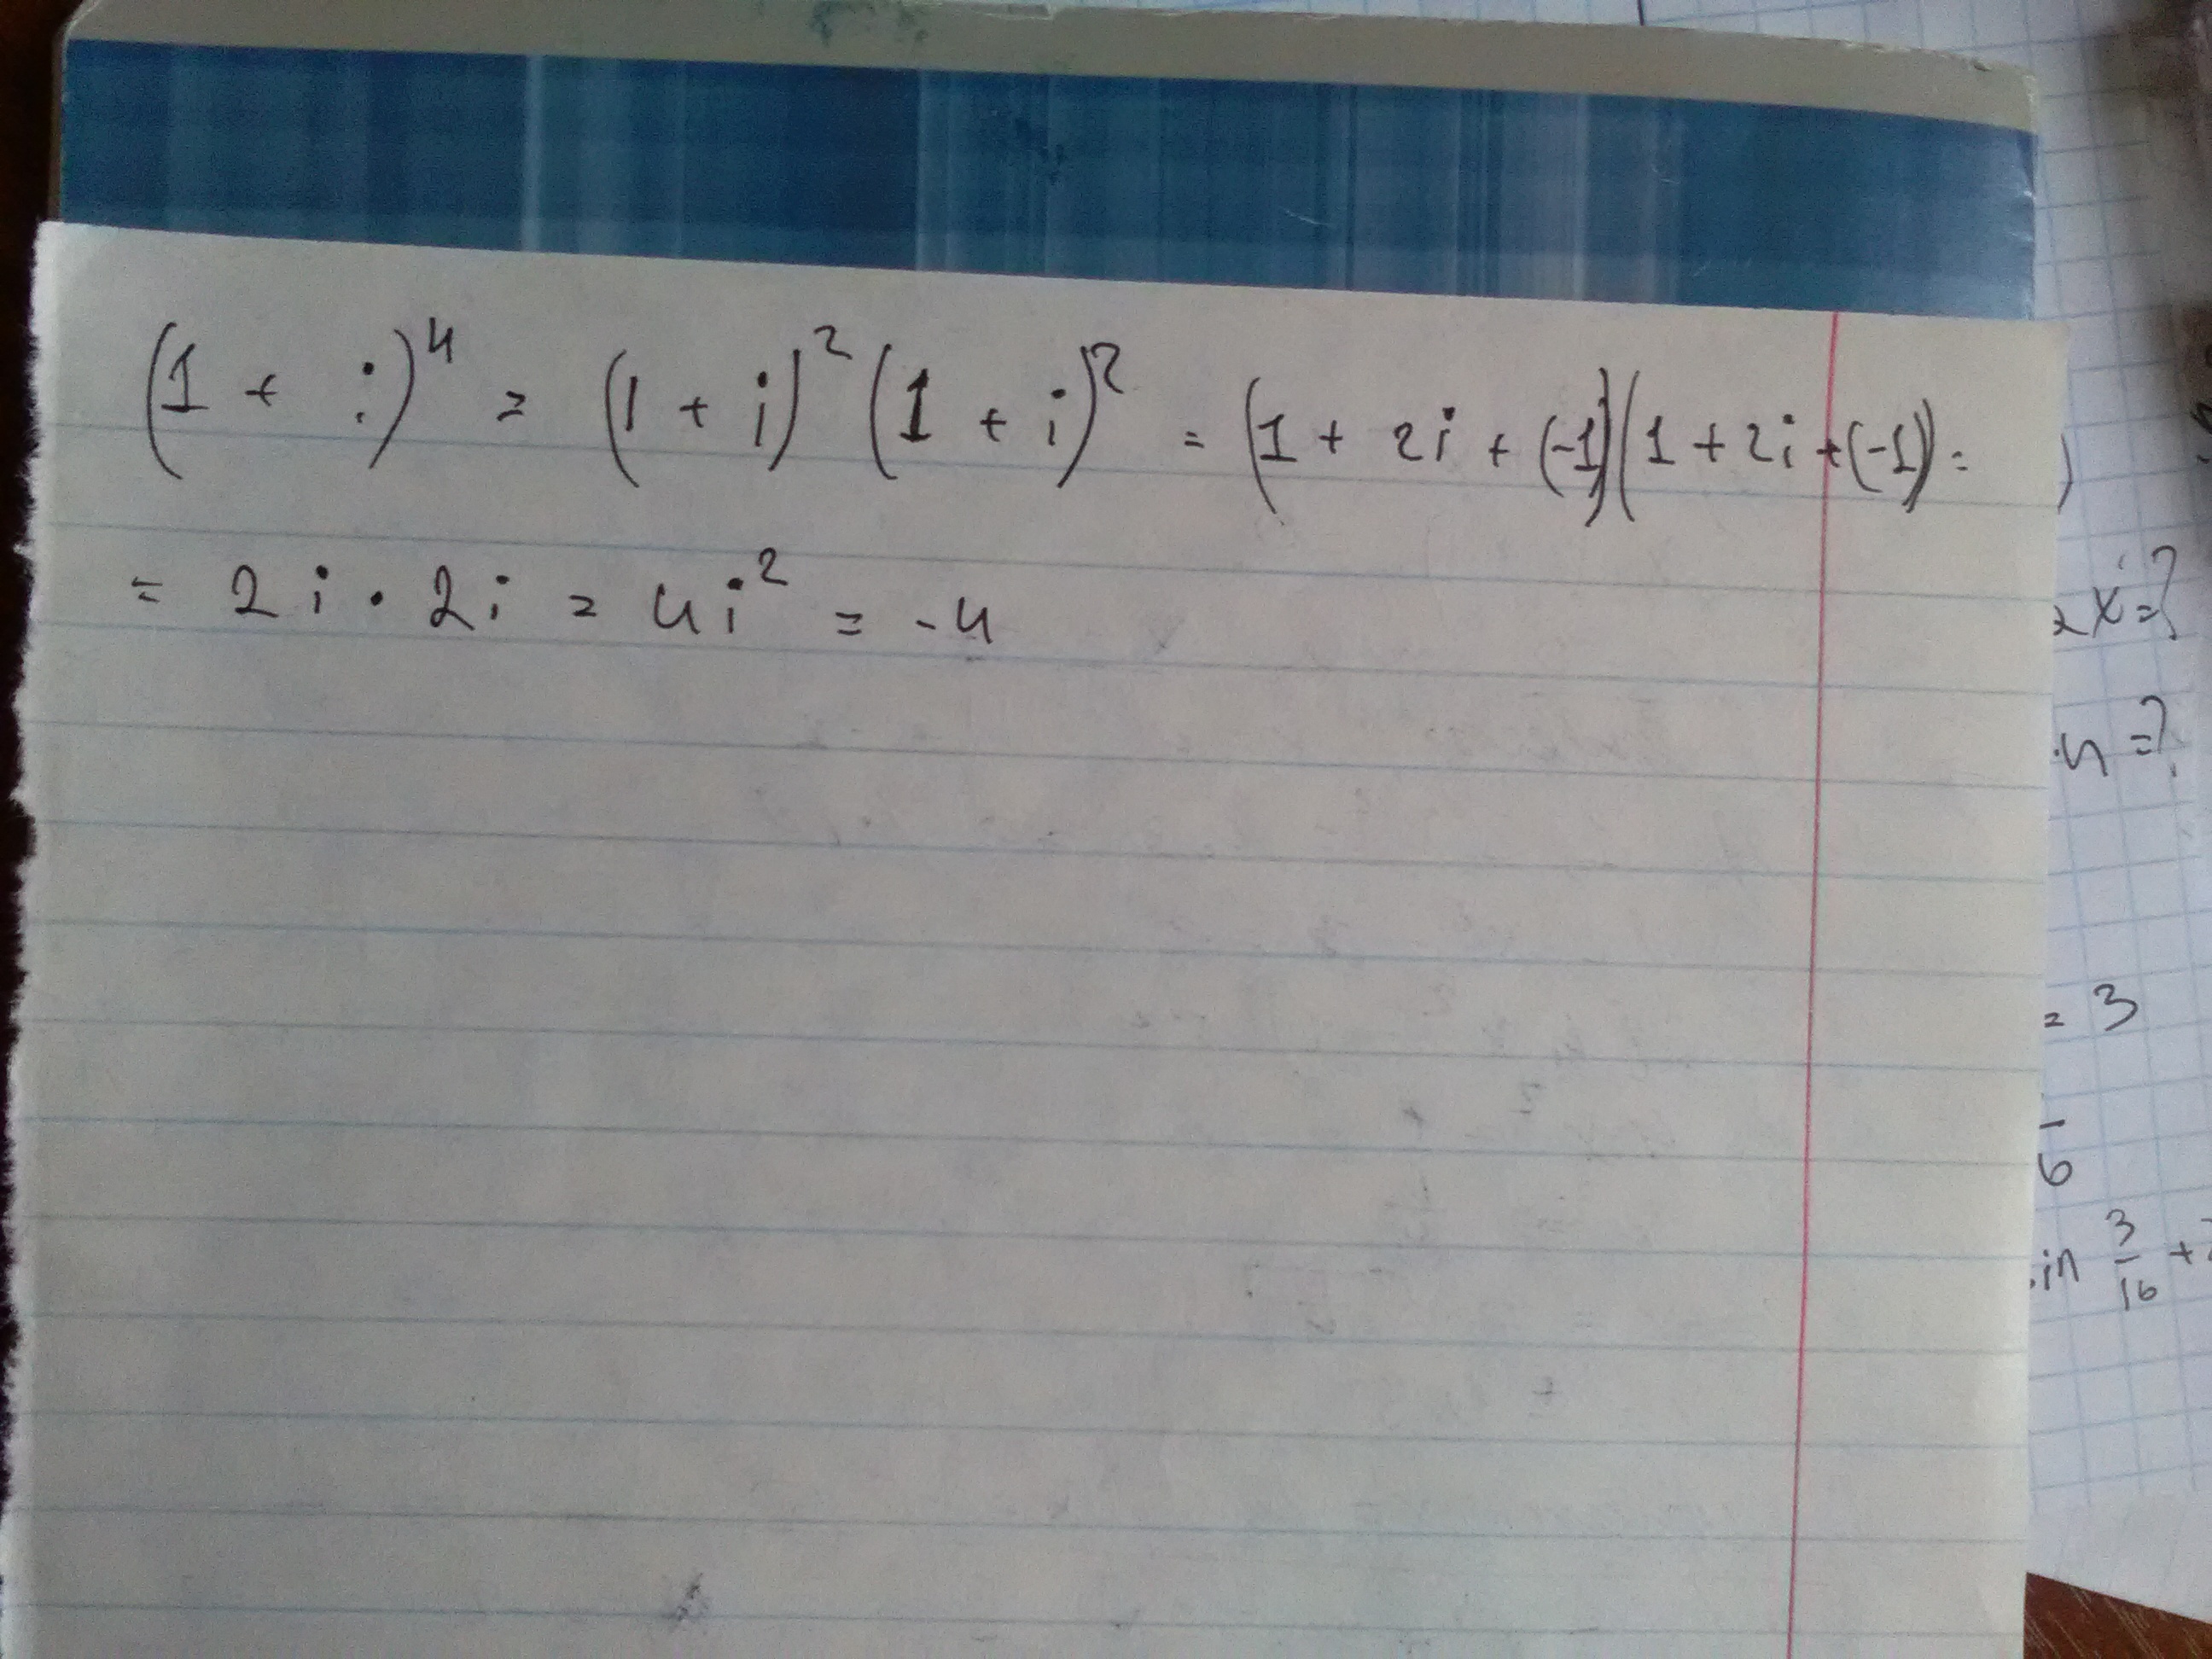 (1 + i)⁴ = (1 + i)² (1 + i)² = (1 + 2i + (-1))(1 + 2i + (-1)) =
= 2i · 2i = 4i² = -4
)
2x=?
·4=?
= 3
6
in 3/16 +